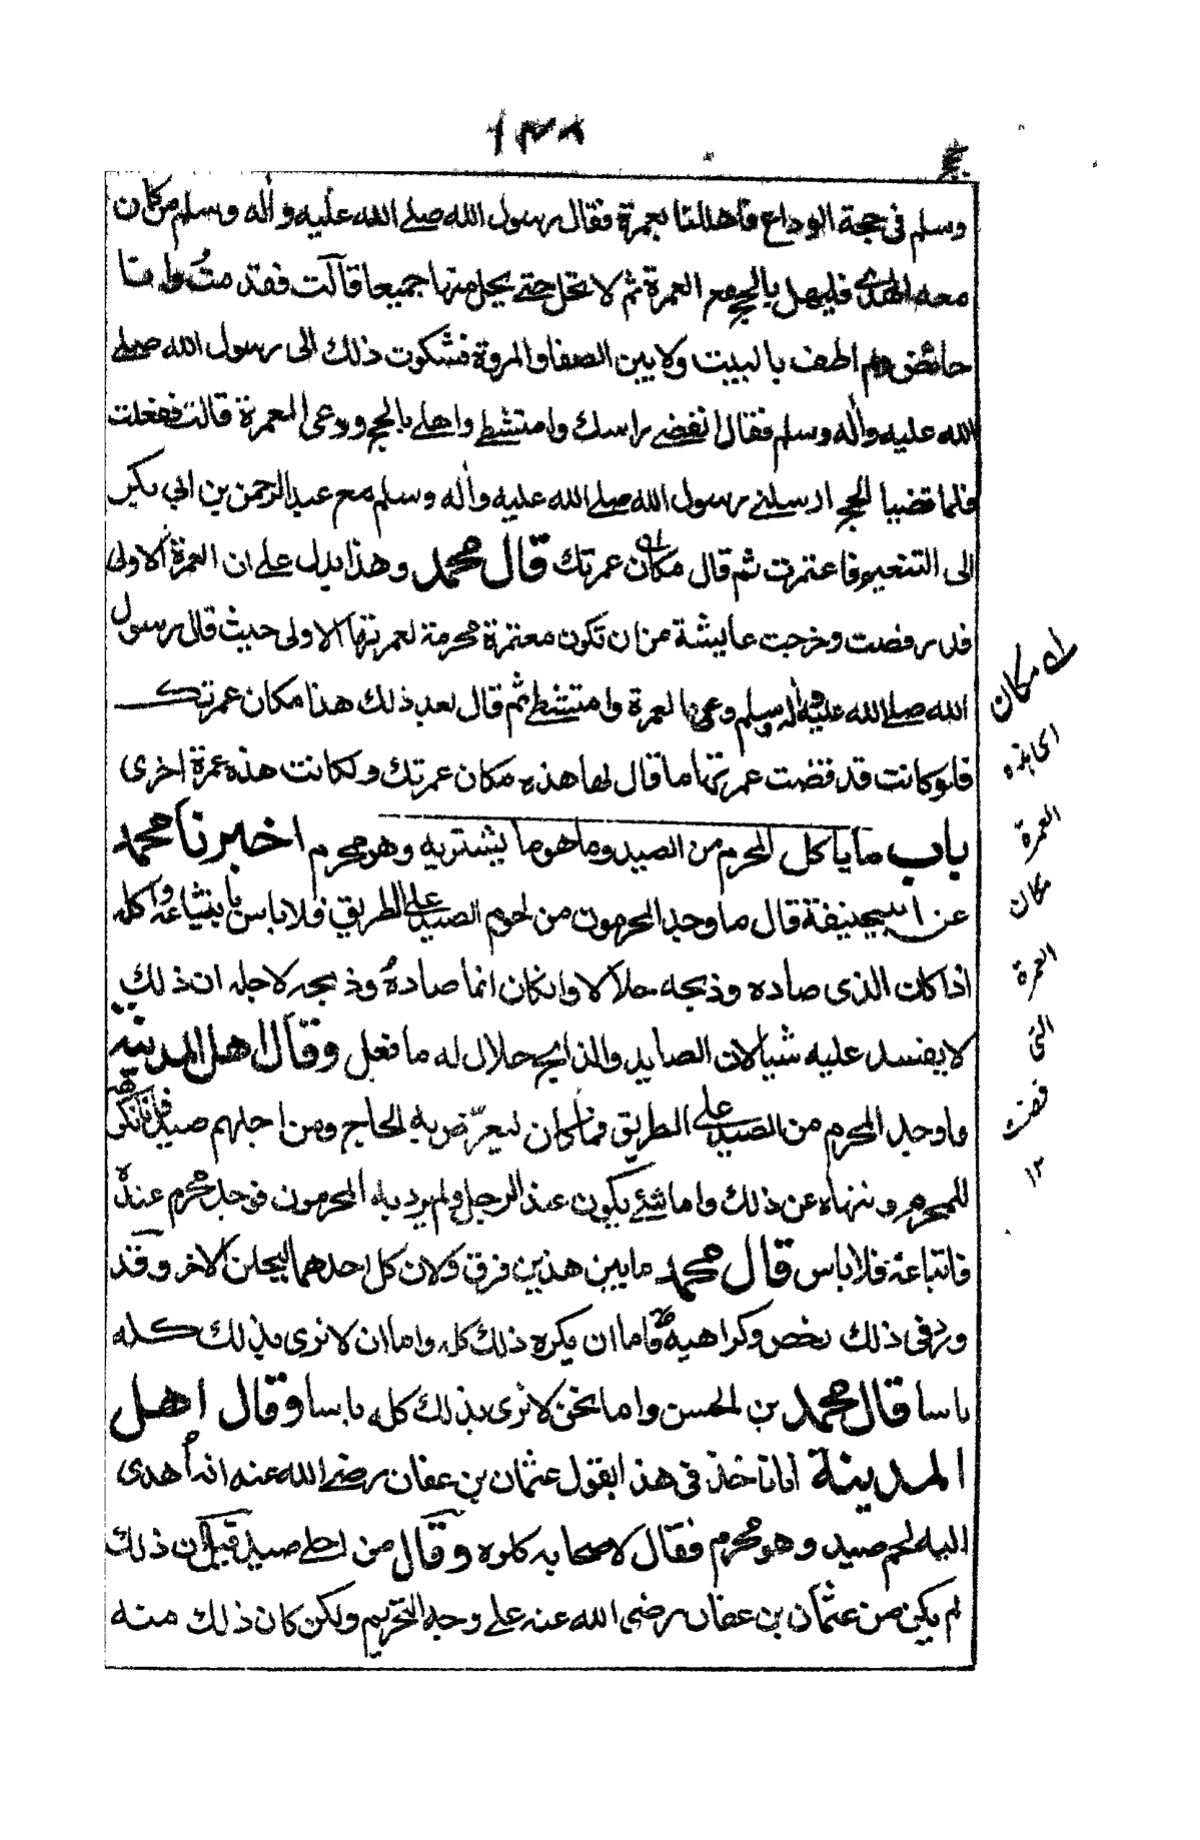 ١٣٨
وسلم فى حجة الوداع فاهللنا بعمرة فقال رسول الله صلے الله عليه واٰله وسلم من كان
معه الهدى فليهل بالحج مع العمرة ثم لا تحل حتے يحل منها جميعا قالت فقدمت وانا
حائض ولم اطف بالبيت ولا بين الصفا والمروة فشكوت ذلك الى رسول الله صلے
الله عليه واٰله وسلم فقال انقضے راسك وامتشطے واهلے بالحج ودعى العمرة قالت ففعلت
فلما قضينا الحج ارسلنے رسول الله صلے الله عليه واٰله وسلم مع عبد الرحمن بن ابي بكر
الى التنعيم فاعتمرت ثم قال مكان عمرتك قال محمد وهذا يدل علے ان العمرة الاولى
قد رفضت وخرجت عايشة من ان تكون معتمرة محرمة لعمرتها الاولى حيث قال رسول
الله صلے الله عليه واٰله وسلم دعى العمرة وامتشطے ثم قال بعد ذلك هذا مكان عمرتك
فلو كانت قد قضت عمرتها ما قال لها هذه مكان عمرتك ولكانت هذه عمرة اخرى
باب ما ياكل المحرم من الصيد وما هو ما يشتريه وهو محرم اخبرنا محمد
عن ابيحنيفة قال ما وجد المحرمون من لحوم الصيد على الطريق فلا باس بابتياعه واكله
اذا كان الذى صاده وذبحه حلالا وان كان انما صاده وذبحه لاجله ان ذلك
لا يفسد عليه شيئا لان الصايد والذابح حلال له ما فعل وقال اهل المدينة
ما وجد المحرم من الصيد على الطريق فما كان ليعرّض به الحاج ومن اجلهم صيد فانا نكرهه
للمحرم وننهاه عن ذلك واما شئے يكون عند الرجل ولم يرد به المحرمون فوجد محرم عنده
فابتاعه فلا باس قال محمد ما بين هذين فرق ولان كل احدهما ليحلن الاخر وقد
ورد فى ذلك رخص وكراهية فاما ان يكره ذلك كله واما ان لا نرى بذلك كله
باسا قال محمد بن الحسن واما نحن لا نرى بذلك كله باسا وقال اهل
المدينة انا ناخذ فى هذا بقول عثمان بن عفان رضے الله عنه انه اُهدى
اليه لحم صيد وهو محرم فقال لاصحابه كلوه وقال من اجلے صيد قيل ان ذلك
لم يكن من عثمان بن عفان رضى الله عنه علے وجه التحريم ولكن كان ذلك منه
اے مكان
العمرة
مكان
العمرة
التى
١٢